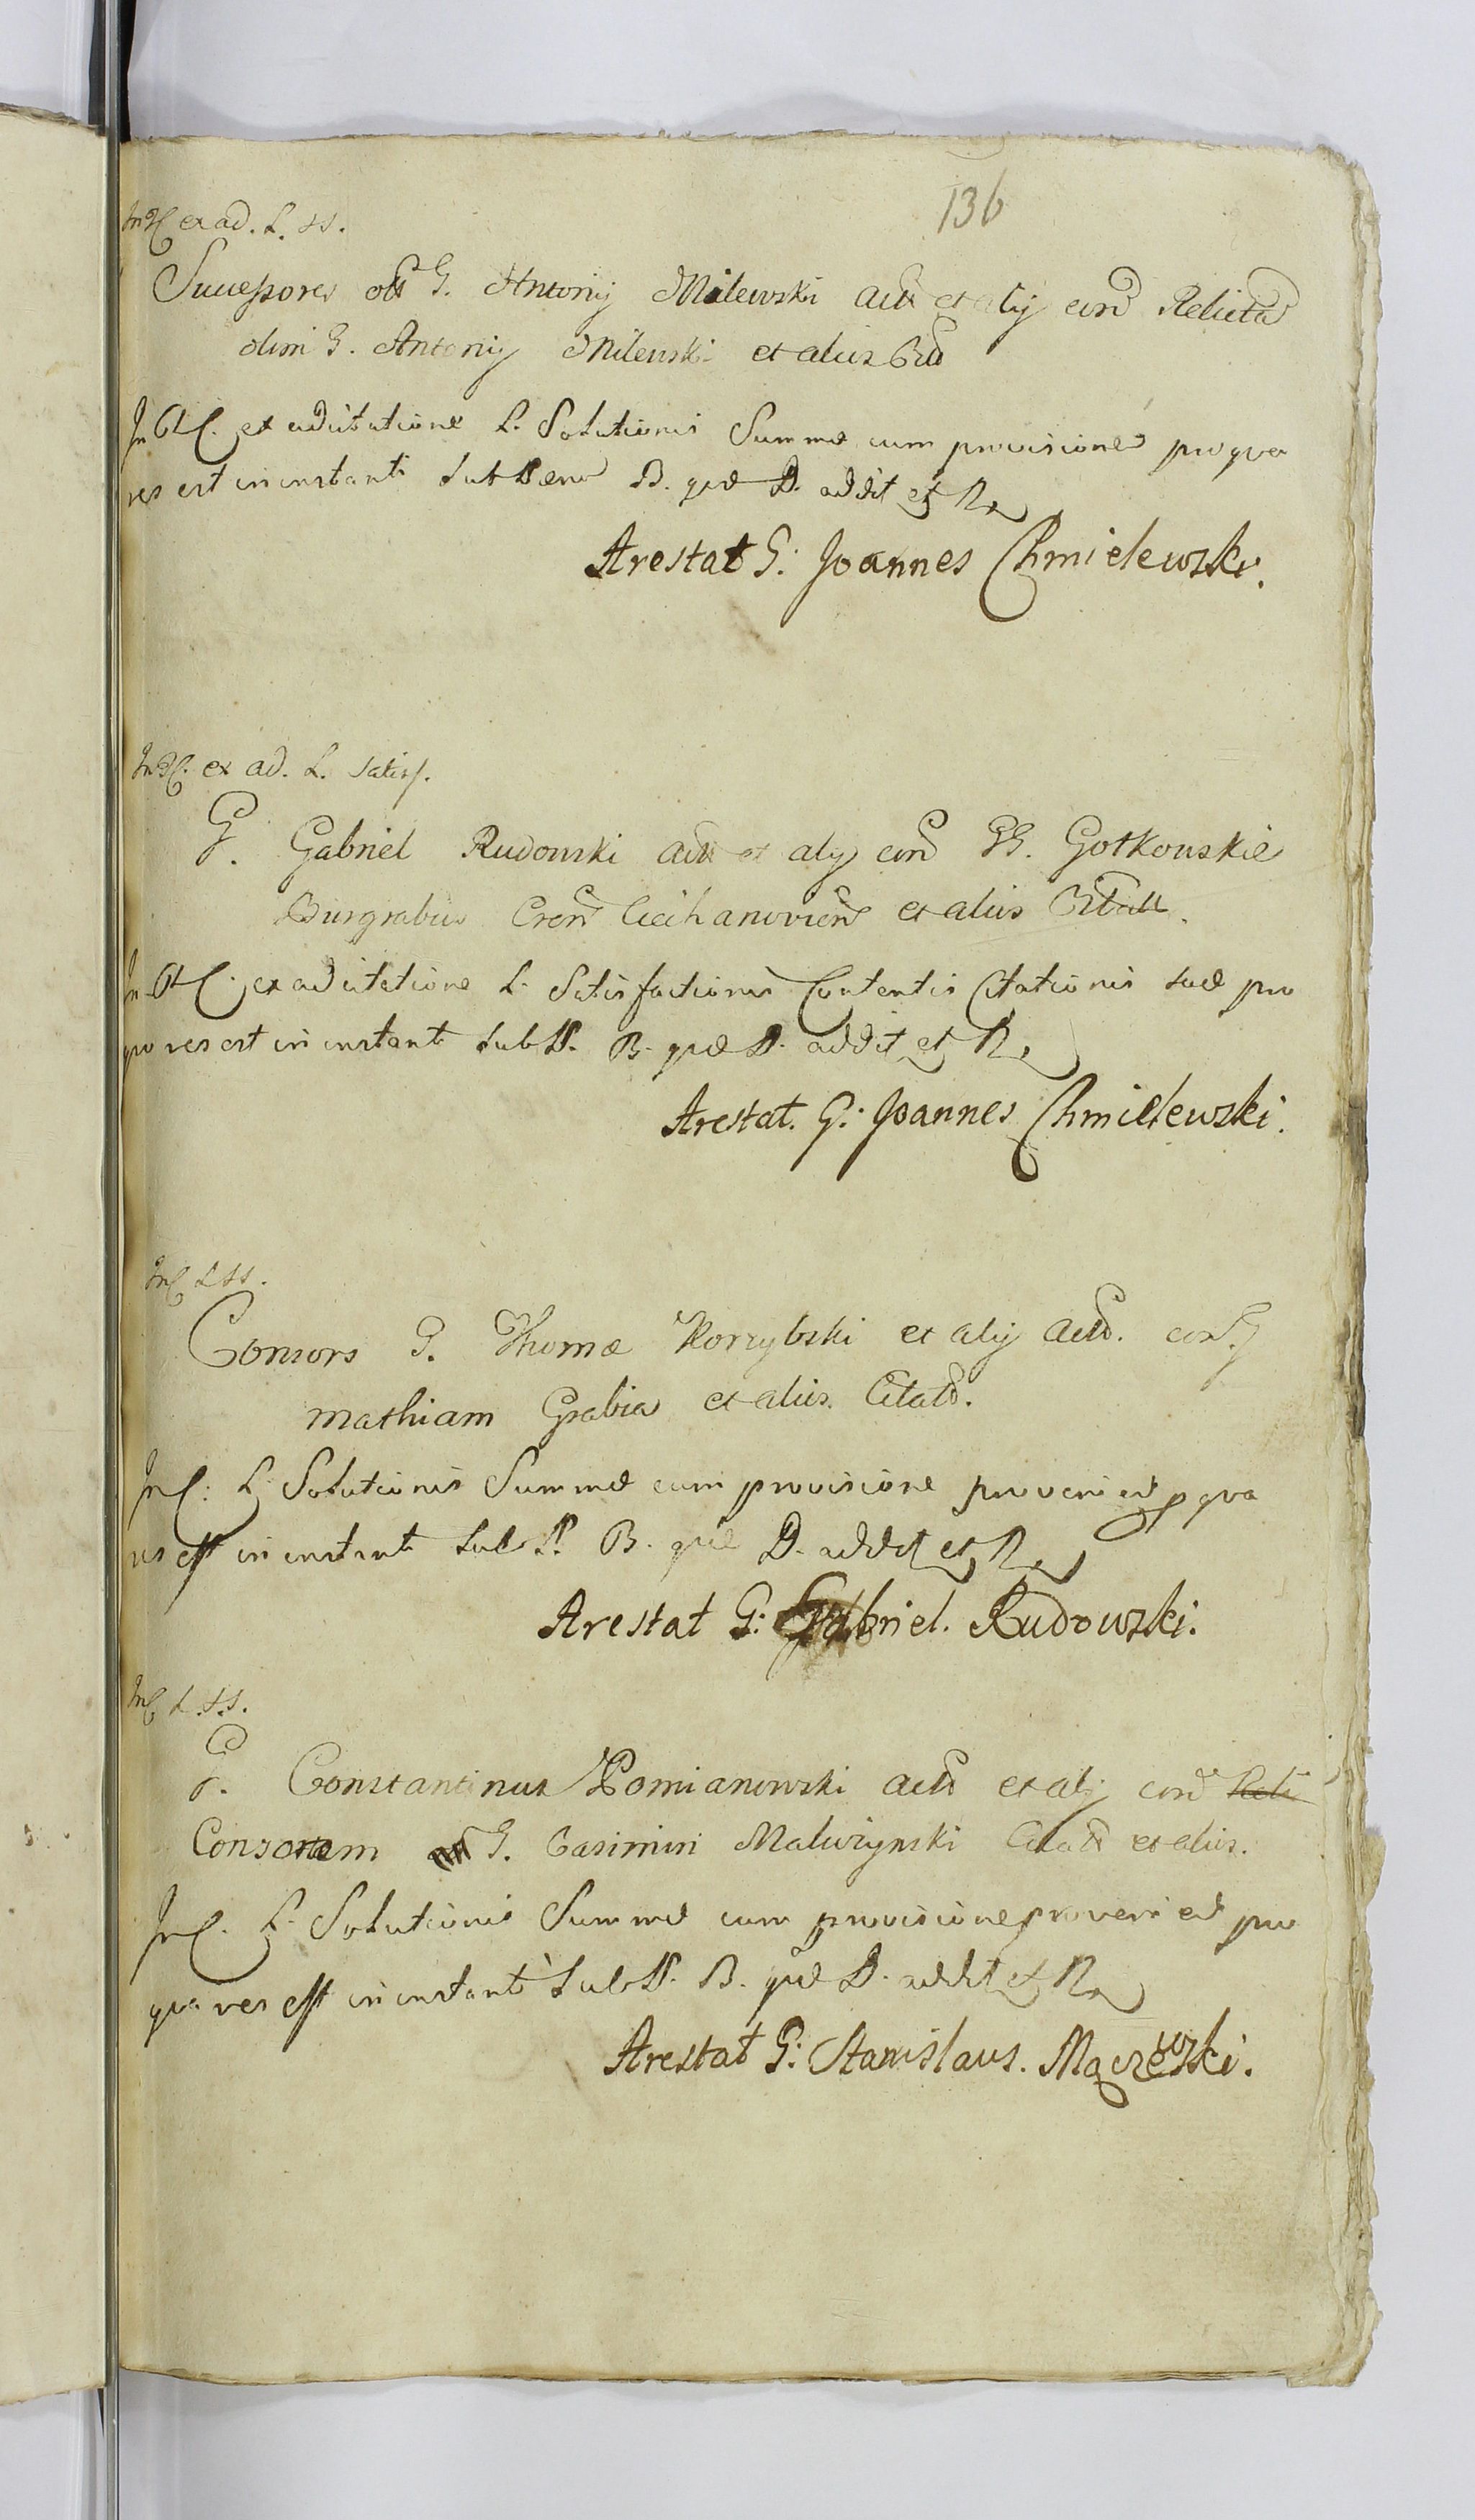 136
ex ad. L. SS.
Successores G. Antonij Milewski et alij con Relicta
olim G. Antonij Milewski et alios
ex adcitatione L. Solutionis Summæ cum provisione pro qva
res est in instanti sub Pæna B. qvæ D. addit et R
Arestat G: Joannes Chmielewski.
ex ad. L. satisf.
G. Gabriel Rudowski et alij con GG. Gotkowskie
Burgrabios Cren Ciechanovien et alios Citatt.
ex adcitatione L. Satisfactionis Contentis Citationis suæ pro
qvo res est in instanti sub P. B. qvæ D. addit et R
Arestat. G: Joannes Chmielewski.
L SS.
Consors G. Thomæ Korzybski et alij con. G
Mathiam Grabia et alios Citato.
L. Solutionis Summæ cum provisione proveni ex p qva
res est in instanti sub P. B. qvæ D. addit et R
Arestat G: Gabriel. Rudowski.
L. S.S.
G. Constantinus Pomianowski et alij con
Consortem G. Casimiri Maluzynski et alios.
L. Solutionis Summæ cum provisione proveni ex pro
qva res est in instanti sub P. B. qvæ D. addit et R
Arestat G: Stanislaus. Mączewski.